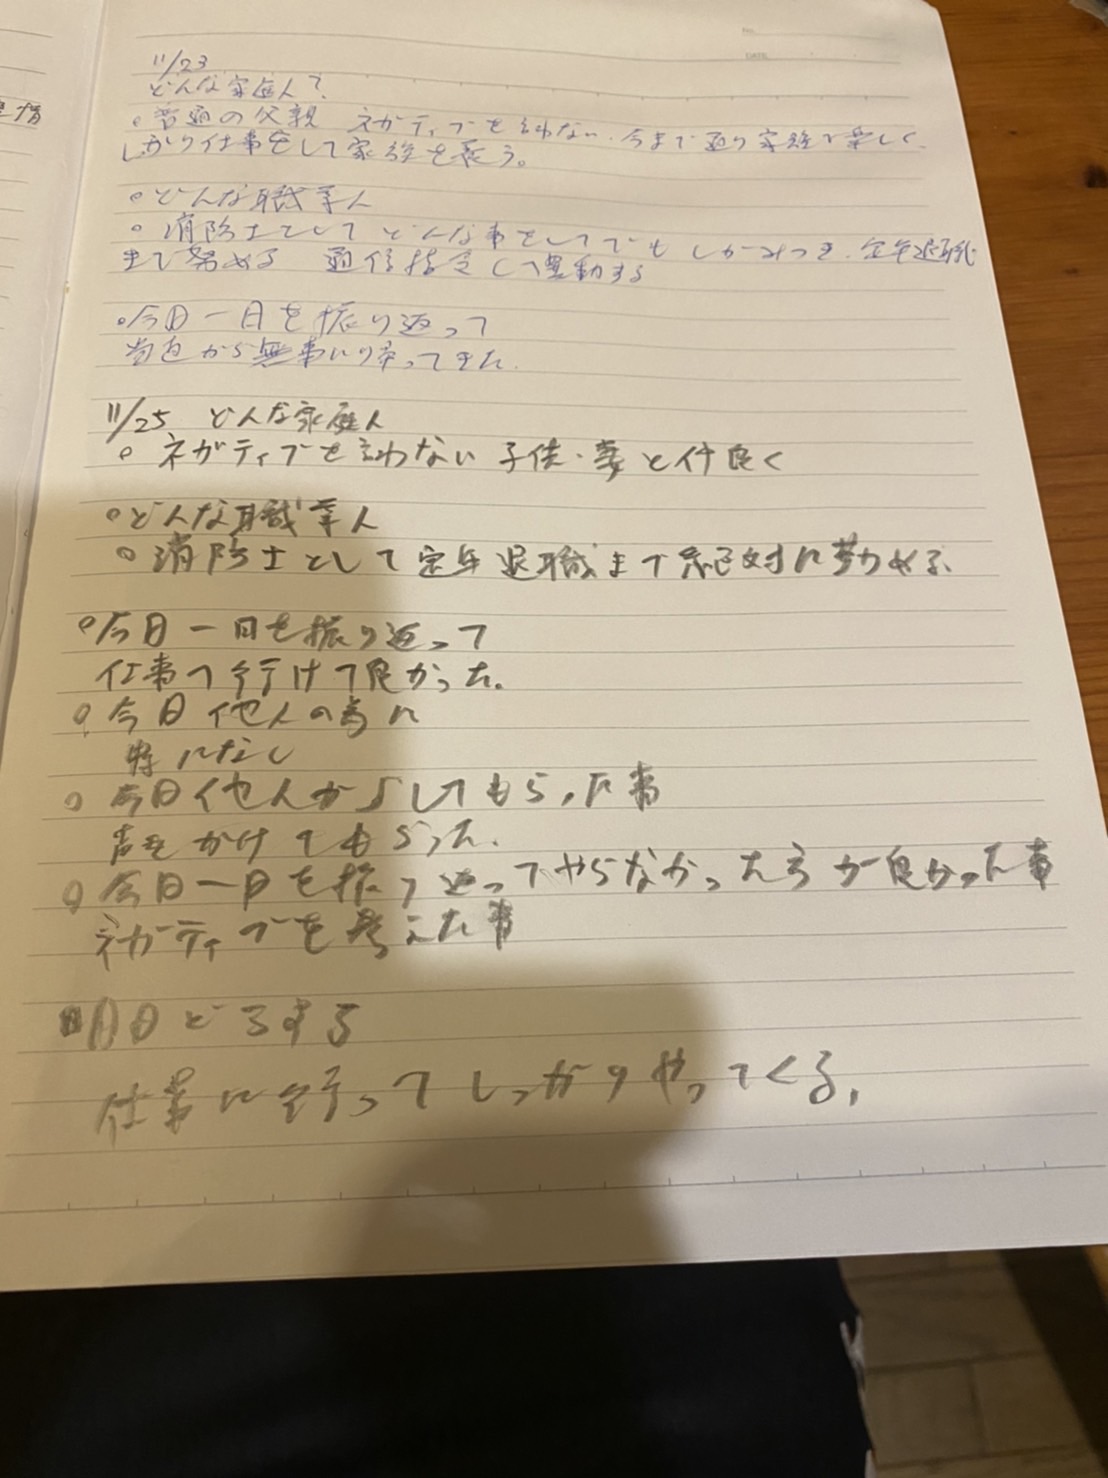 11/23
どんな家庭人?
。普通の父親 ネガティブを言わない、今まで通り家族で楽しく、
しっかり仕事をして家族を養う。
。どんな職業人
。消防士としてどんな事をしてでもしがみつき、定年退職
まで努める 通信指令 して異動する
。今日一日を振り返って
当直から無事に帰ってきた。
11/25 どんな家庭人
。ネガティブを言わない 子供・妻と仲良く
。どんな職業人
。消防士として定年退職まで絶対に勤める。
。今日一日を振り返って
仕事へ行けて良かった。
。今日他人の為に
特になし
。今日他人からしてもらった事
声をかけてもらった。
。今日一日を振り返ってやらなかった方が良かった事
ネガティブを考えた事
明日どうする
仕事に行ってしっかりやってくる。